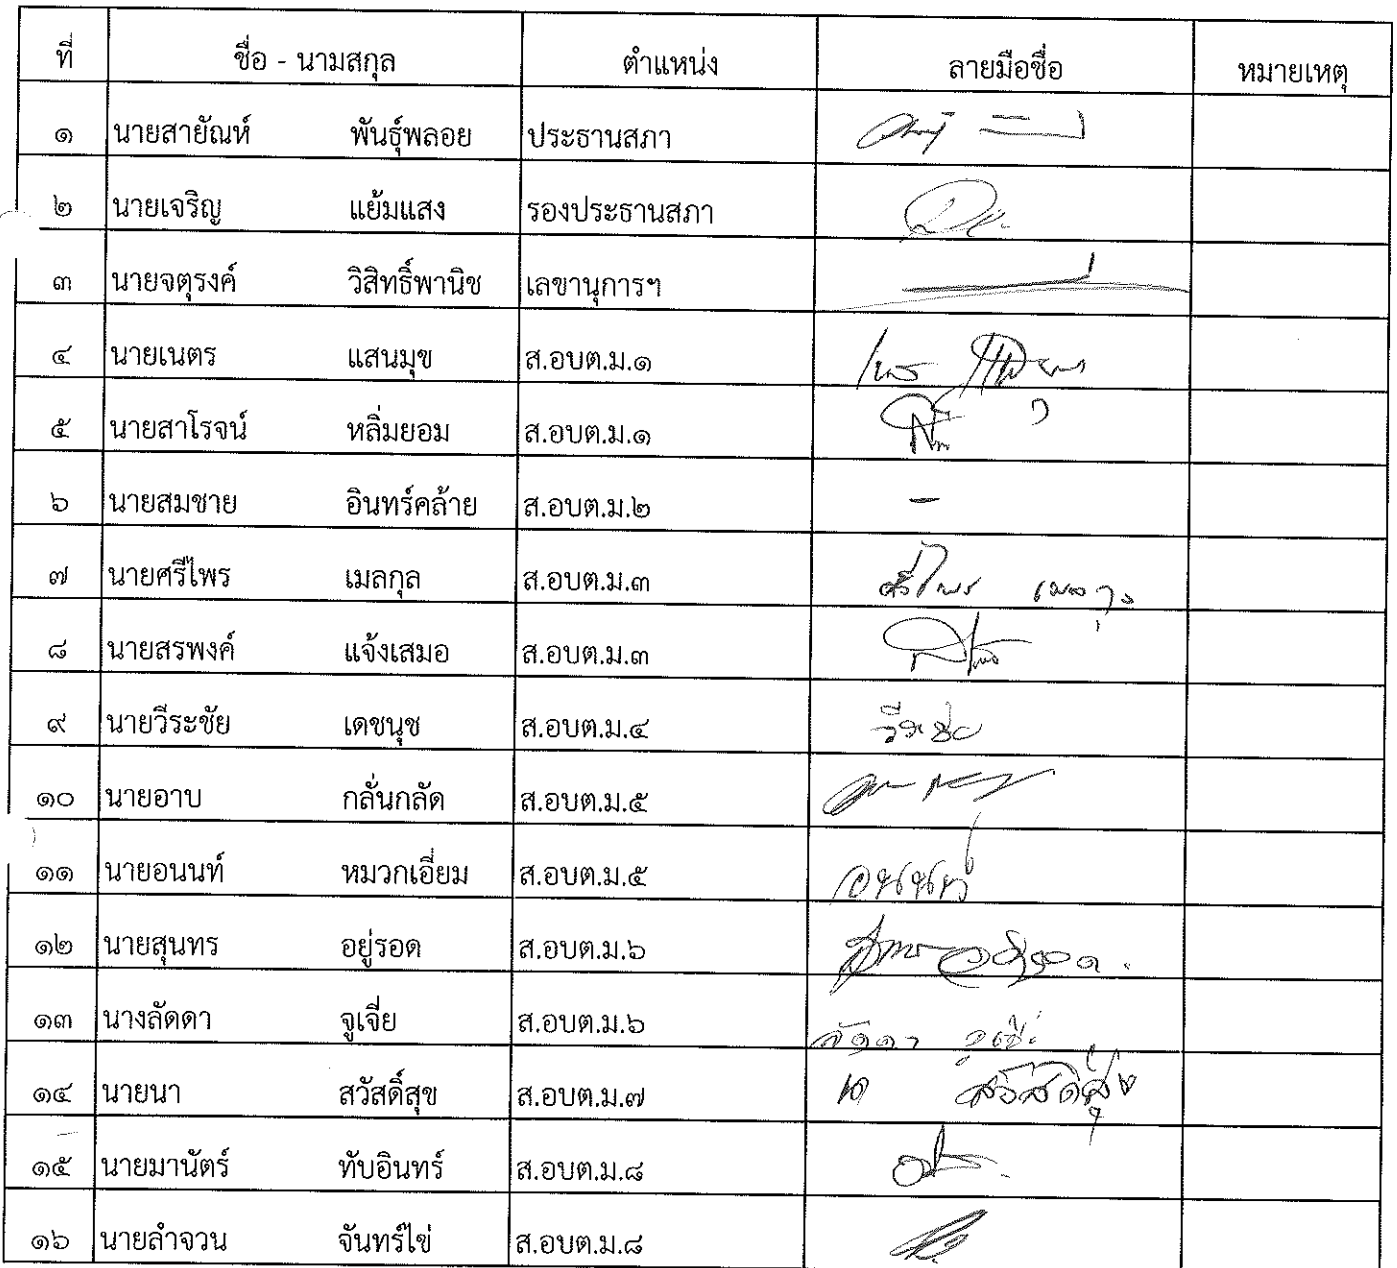 ที่ ชื่อ - นามสกุล ตำแหน่ง ลายมือชื่อ หมายเหตุ
๑ นายสายัณห์ พันธุ์พลอย ประธานสภา
๒ นายเจริญ แย้มแสง รองประธานสภา
๓ นายจตุรงค์ วิสิทธิ์พานิช เลขานุการฯ
๔ นายเนตร แสนมุข ส.อบต.ม.๑
๕ นายสาโรจน์ หลิ่มยอม ส.อบต.ม.๑
๖ นายสมชาย อินทร์คล้าย ส.อบต.ม.๒ -
๗ นายศรีไพร เมลกุล ส.อบต.ม.๓ ศรีไพร เมลกุล
๘ นายสรพงค์ แจ้งเสมอ ส.อบต.ม.๓
๙ นายวีระชัย เดชนุช ส.อบต.ม.๔ วีระชัย
๑๐ นายอาบ กลั่นกลัด ส.อบต.ม.๕
๑๑ นายอนนท์ หมวกเอี่ยม ส.อบต.ม.๕ อนนท์
๑๒ นายสุนทร อยู่รอด ส.อบต.ม.๖ สุนทร อยู่รอด
๑๓ นางลัดดา จูเจี่ย ส.อบต.ม.๖ ลัดดา จูเจี่ย
๑๔ นายนา สวัสดิ์สุข ส.อบต.ม.๗ นา สวัสดิ์สุข
๑๕ นายมานัตร์ ทับอินทร์ ส.อบต.ม.๘
๑๖ นายลำจวน จันทร์ไข่ ส.อบต.ม.๘